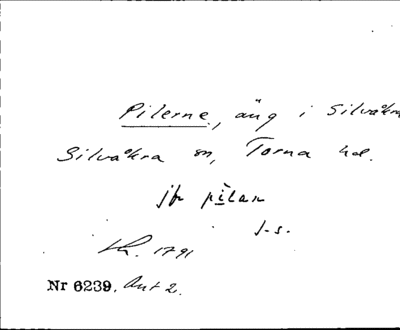 Pilerne, äng i Silvåkra
Silvåkra sn, Torna hd.
jfr pilan
s.s.
Lh. 1791
Nr 6239. Akt 2.